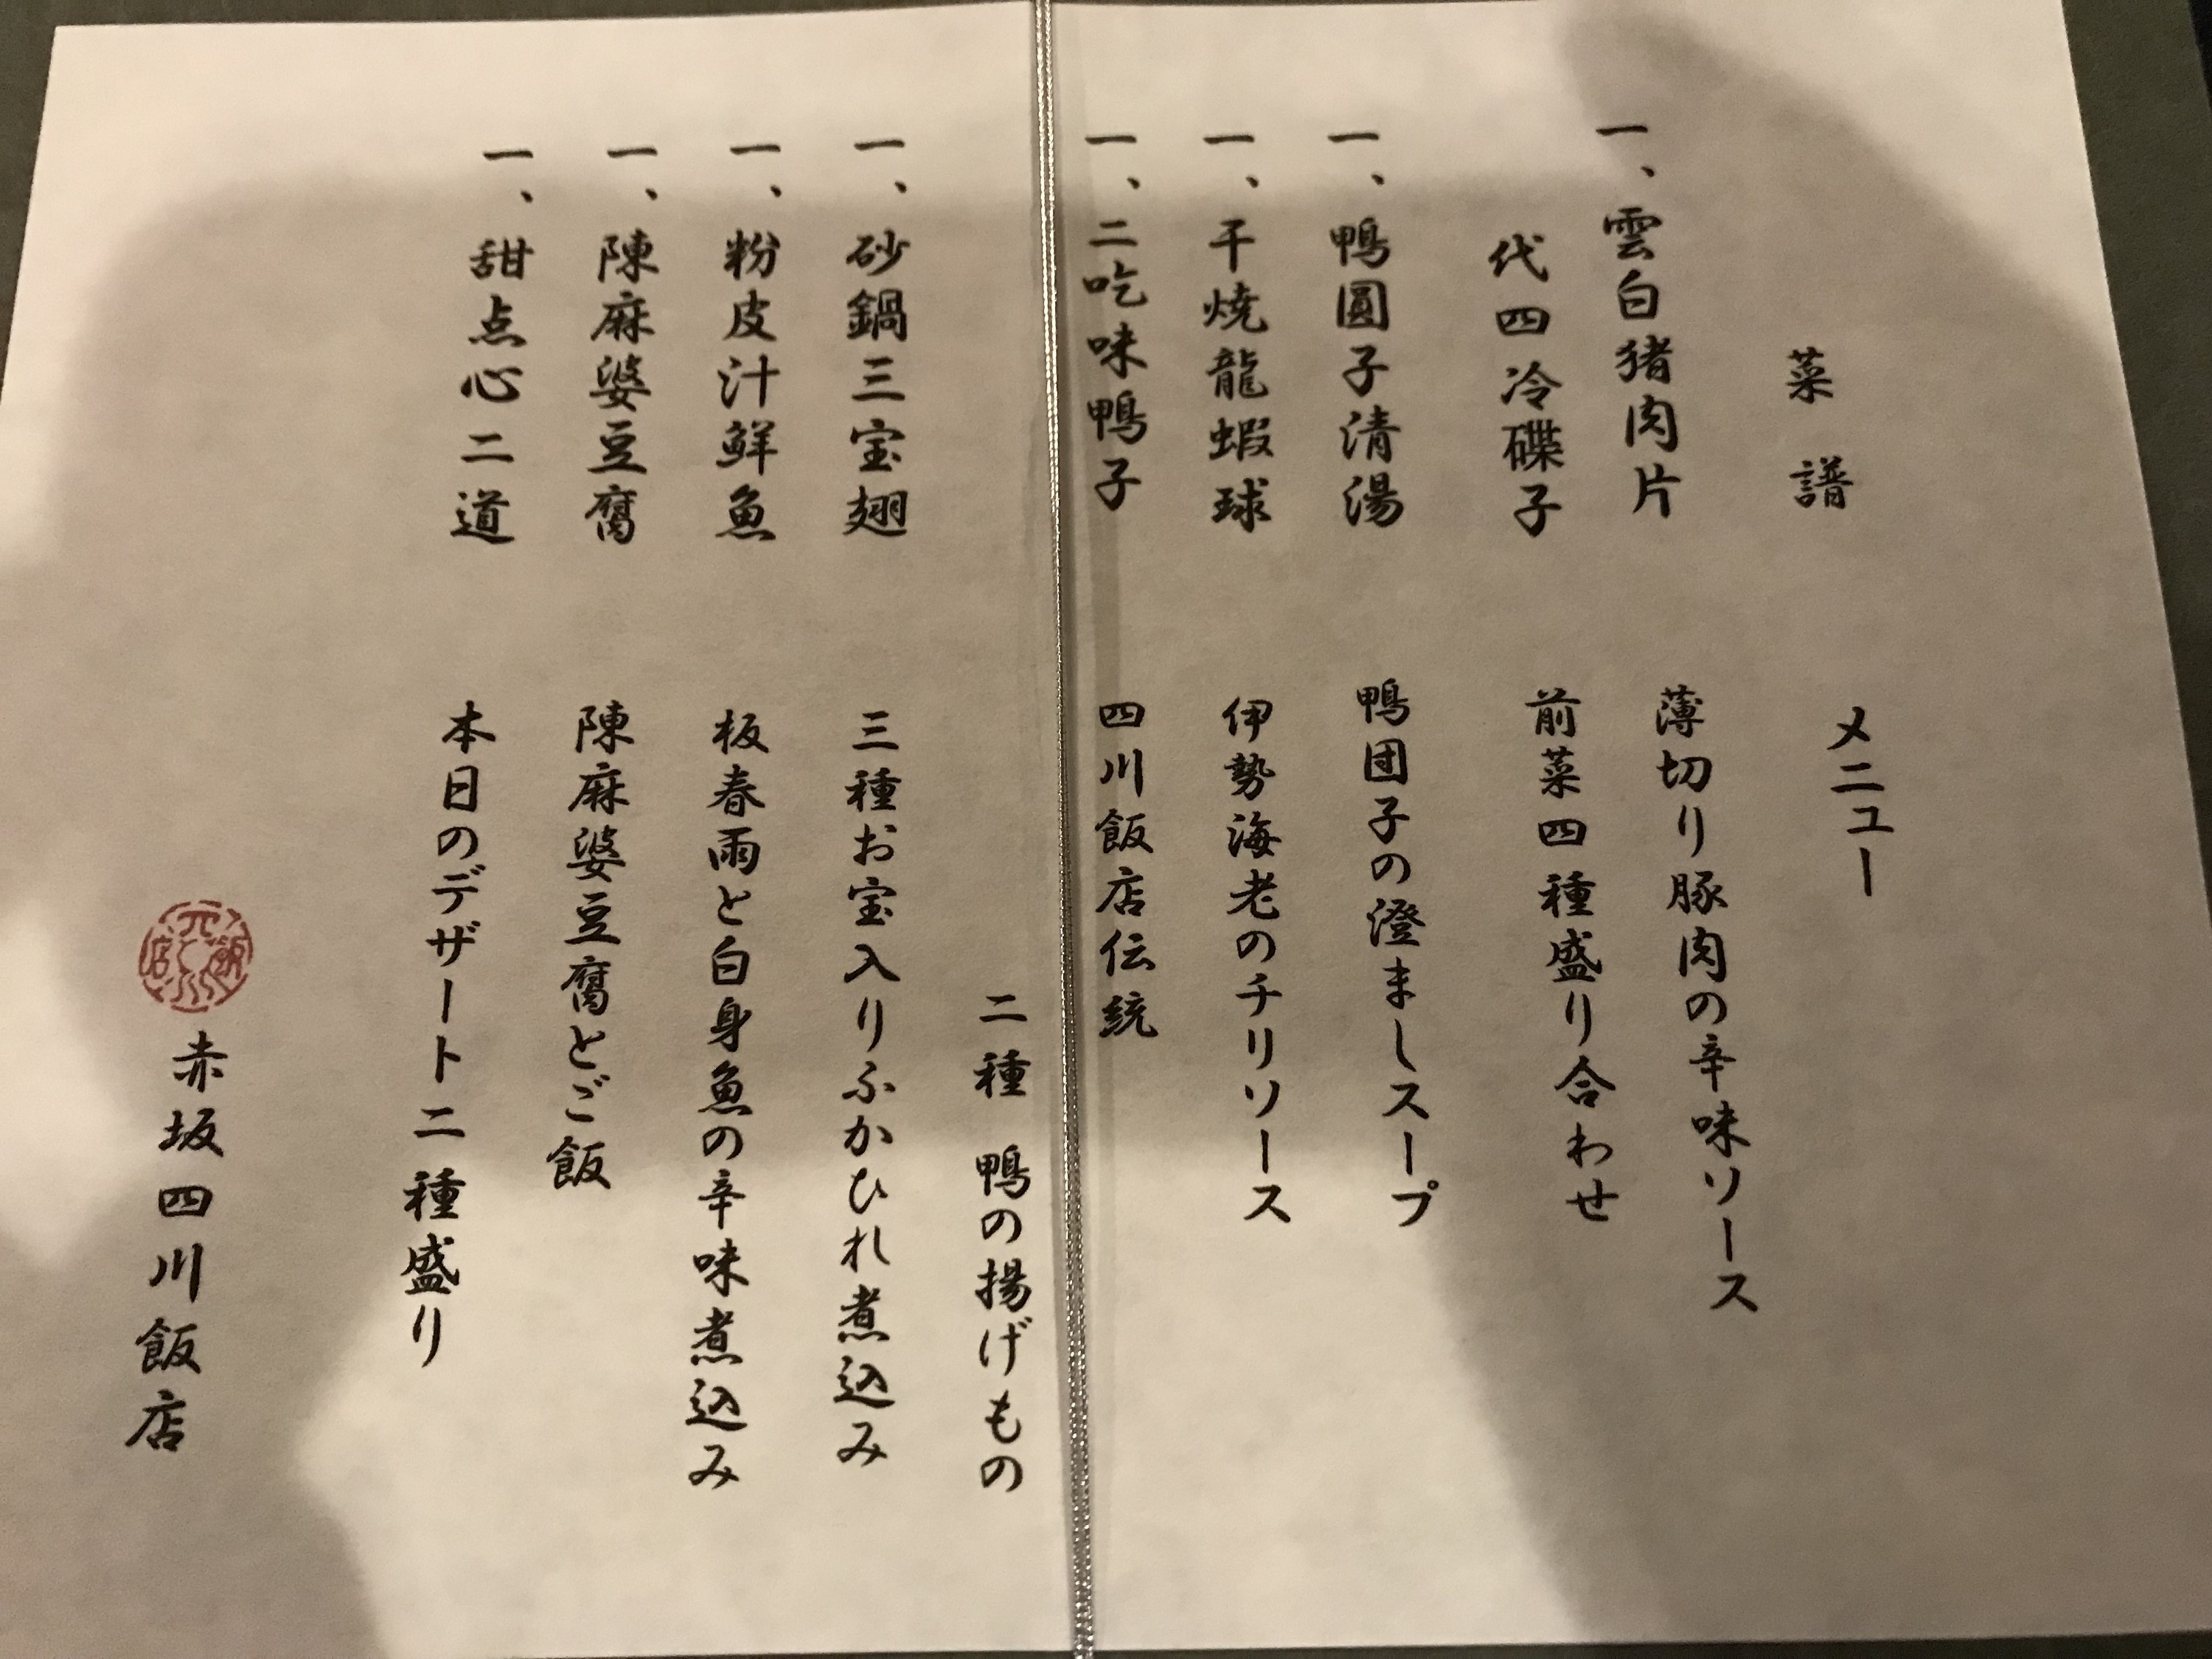 菜譜 メニュー
一、雲白猪肉片 薄切り豚肉の辛味ソース
代四冷碟子 前菜四種盛り合わせ
一、鴨圓子清湯 鴨団子の澄ましスープ
一、干焼龍蝦球 伊勢海老のチリソース
一、二吃味鴨子 四川飯店伝統
二種 鴨の揚げもの
一、砂鍋三宝翅 三種お宝入りふかひれ煮込み
一、粉皮汁鮮魚 板春雨と白身魚の辛味煮込み
一、陳麻婆豆腐 陳麻婆豆腐とご飯
一、甜点心二道 本日のデザート二種盛り
赤坂四川飯店